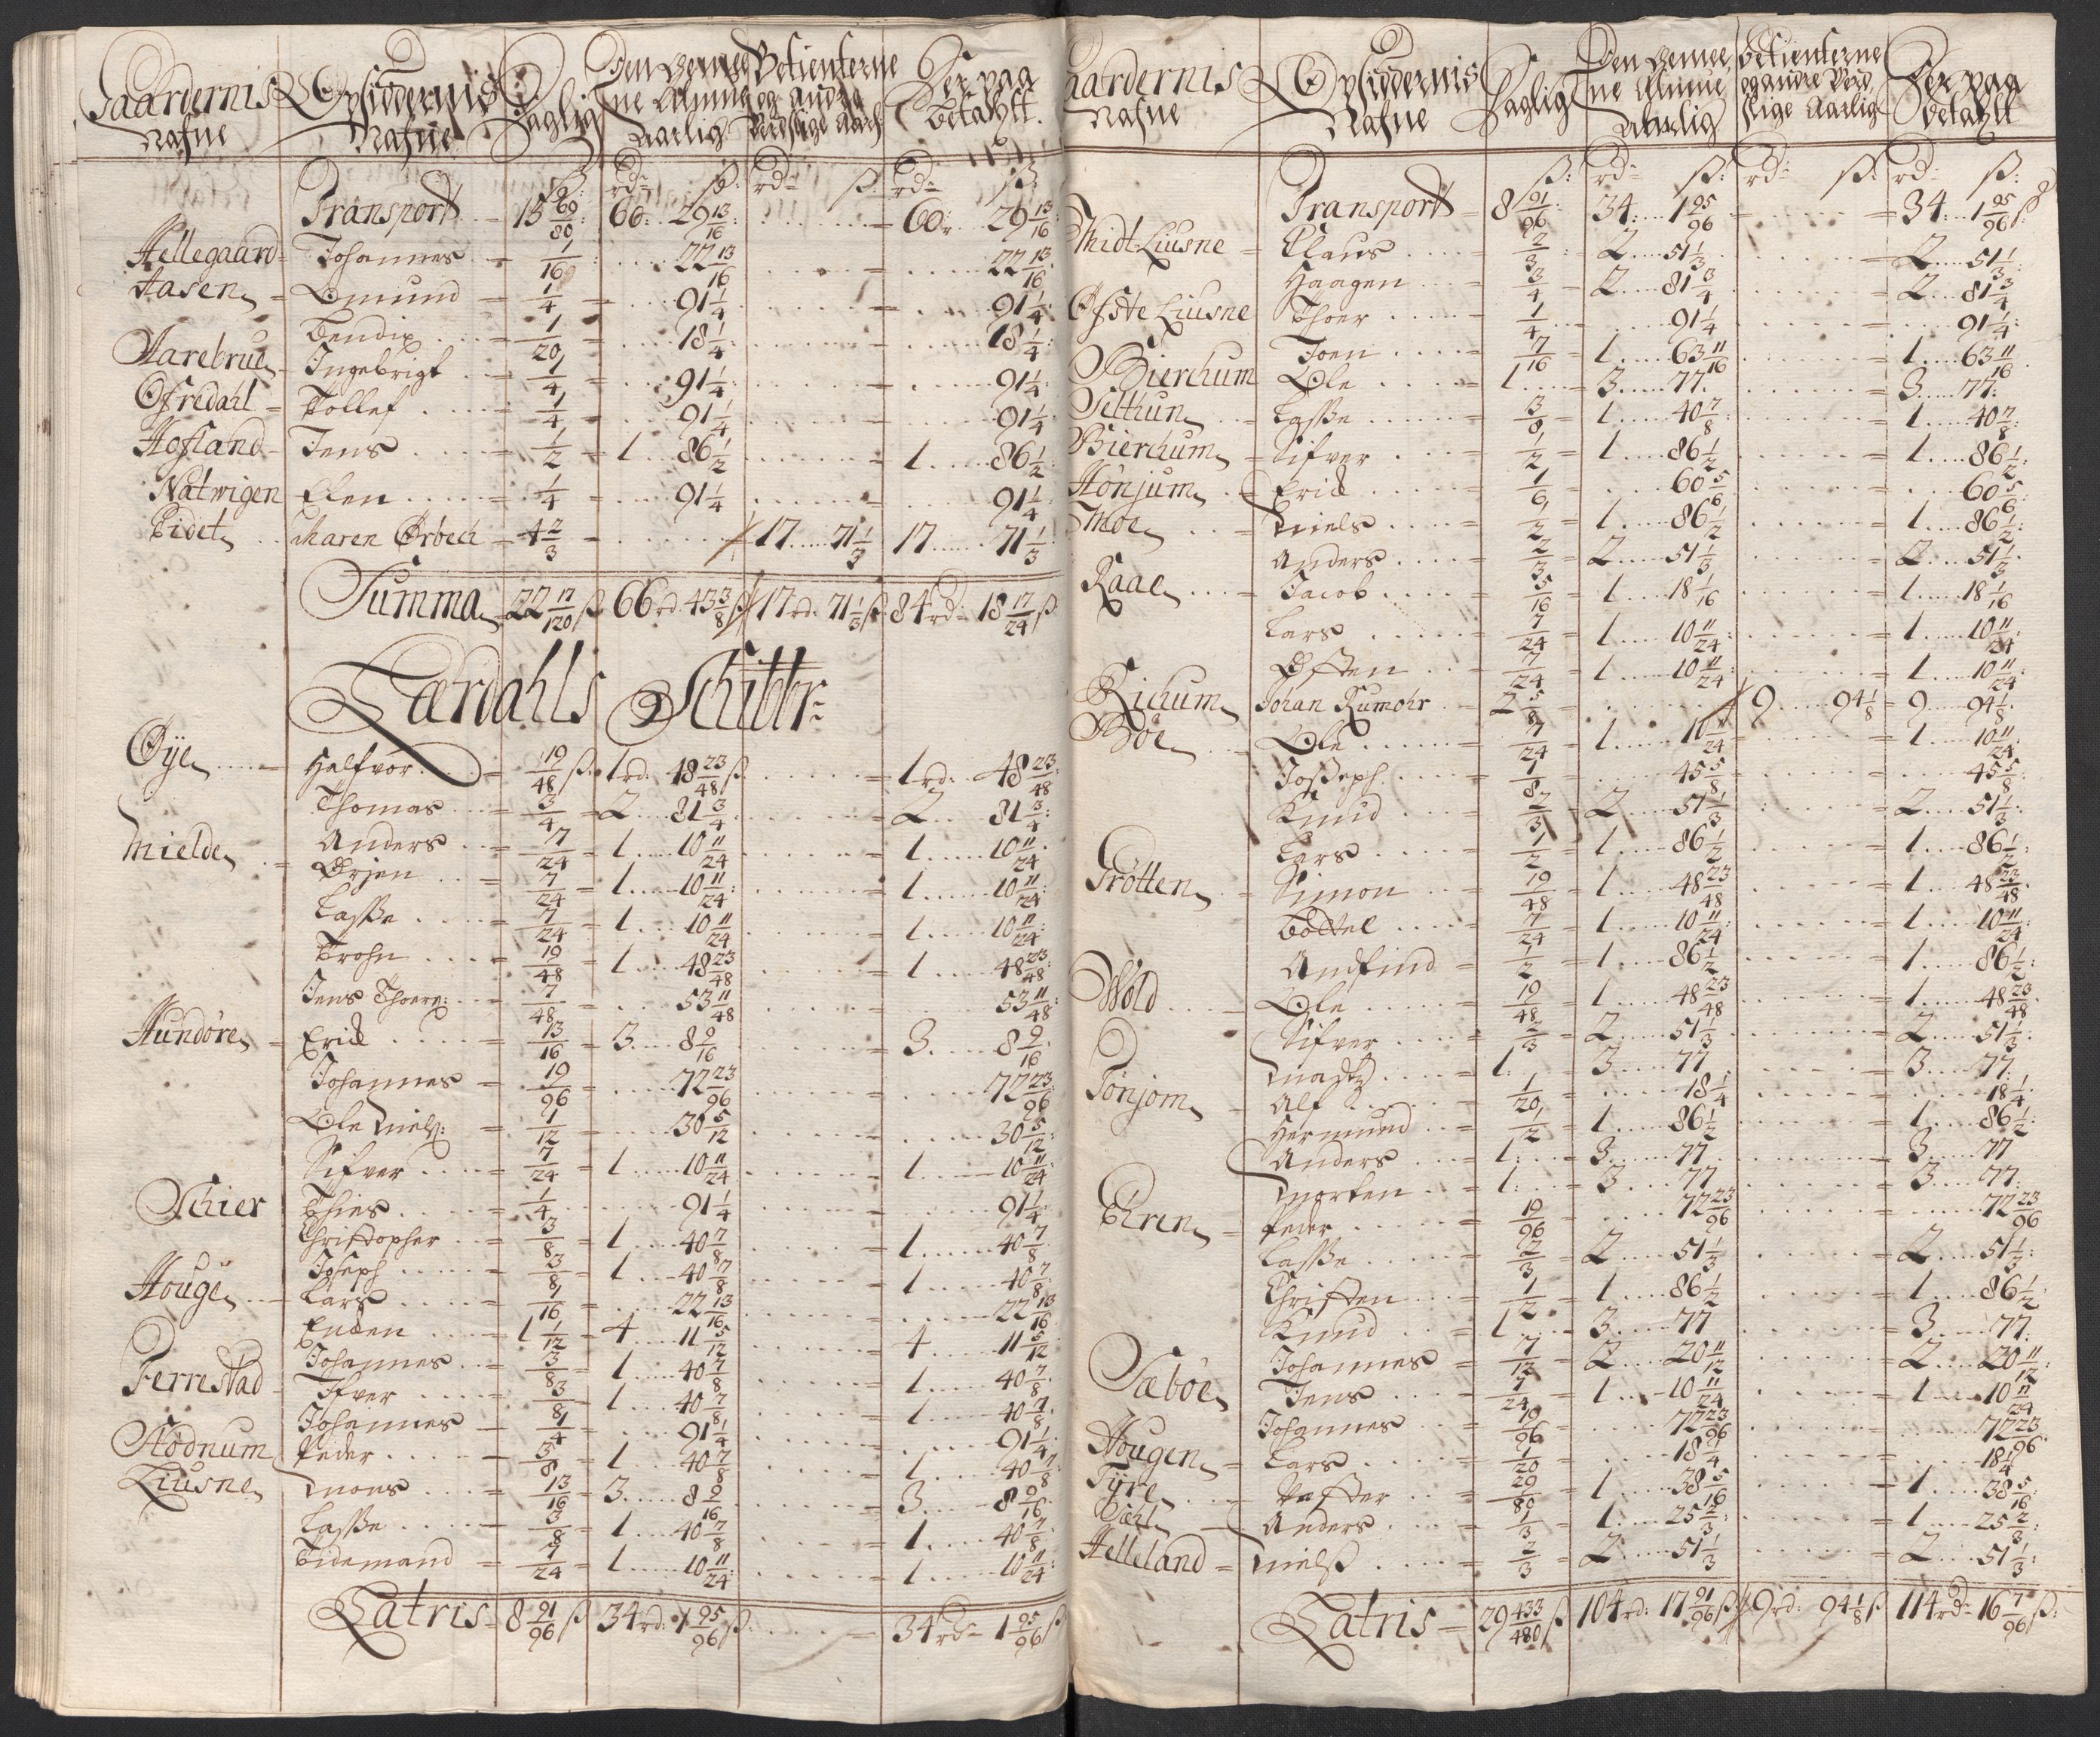 Gaardernis Nafne | Opsiddernis Nafne | Daglig | Den Gemeene Almue Aarlig | Betienterne og andre Verdslige Aarl: | Her paa betahlt.
ß: | rd= ß: | rd= ß: | rd= ß:
Transport 15 69/80: 60: 29 13/16: 60: 29 13/16
Hellegaard Johannes 1/16: 22 13/16 22 13/16
Aasen Omund 1/4 91 1/4 91 1/4
Bendix 1/20 18 1/4 18 1/4
Aarebrue Ingebrigt 1/4 91 1/4 91 1/4
Ofredahl Tollef 1/4 91 1/4 91 1/4
Hofland Jens 1/2 1 86 1/2 1 86 1/2
Natwigen Elen 1/4 91 1/4 91 1/4
Eidet Maren Ørbech 4 2/3 17 71 1/3 17 71 1/3
Summa 22 17/120 ß 66 rd 43 3/8 ß 17 rd. 71 1/3 ß 84 rd= 18 17/24 ß
Lærdahls Schibbr:
Øye Halfvor 19/48 ß 1 rd. 48 23/48 ß 1 rd. 48 23/48
Thomas 3/4 2 81 3/4 2 81 3/4
Mielde Anders 7/24 1 10 11/24 1 10 11/24
Ørjen 7/24 1 10 11/24 1 10 11/24
Lasse 7/24 1 10 11/24 1 10 11/24
Trohn 19/48 1 48 23/48 1 48 23/48
Jens Thoers: 7/48 53 11/48 53 11/48
Hundøre Erick 13/16 3 8 9/16 3 8 9/16
Johannes 19/96 72 23/96 72 23/96
Ole Niels: 1/12 30 5/12 30 5/12
Sifver 7/24 1 10 11/24 1 10 11/24
Schier Thies 1/4 91 1/4 91 1/4
Christopher 3/8 1 40 7/8 1 40 7/8
Houge Joseph 3/8 1 40 7/8 1 40 7/8
Lars 1/16 22 13/16 22 13/16
Enden 1 1/12 4 11 5/12 4 11 5/12
Ferrestad Johannes 3/8 1 40 7/8 1 40 7/8
Ifver 3/8 1 40 7/8 1 40 7/8
Johannes 1/4 91 1/4 91 1/4
Stødnum Peder 3/8 1 40 7/8 1 40 7/8
Liusne Mons 13/16 3 8 9/16 3 8 9/16
Lasse 3/8 1 40 7/8 1 40 7/8
Tidemand 7/24 1 10 11/24 1 10 11/24
Latris 8 91/96 ß 34 rd: 1 95/96 ß 34 rd= 1 95/96 ß
Gaardernis Nafne | Opsiddernis Nafne | Daglig | Den Gemeene Almue Aarlig | Betienterne og andre Verdslige Aarlig | Her paa betahlt
ß: | rd= ß: | rd= ß: | rd= ß:
Transport 8 91/96 34: 1 95/96 34: 1 95/96 ß
Midt-Liusne Claus 2/3 2 51 1/3 2 51 1/3
Haagen 3/4 2 81 3/4 2 81 3/4
Øfste Liusne Thoer 1/4 91 1/4 91 1/4
Joen 7/16 1 63 11/16 1 63 11/16
Bierchum Ole 1 3 77 3 77
Selthun Lasse 3/8 1 40 7/8 1 40 7/8
Bierchum Sifver 1/2 1 86 1/2 1 86 1/2
Hønjum Erick 1/6 60 5/6 60 5/6
Moe Niels 1/2 1 86 1/2 1 86 1/2
Anders 2/3 2 51 1/3 2 51 1/3
Raae Jacob 5/16 1 18 1/16 1 18 1/16
Lars 7/24 1 10 11/24 1 10 11/24
Østen 7/24 1 10 11/24 1 10 11/24
Richum Johan Rumohr 2 5/8 9 94 1/8 9 94 1/8
Bøe Ole 7/24 1 10 11/24 1 10 11/24
Joseph 1/8 45 5/8 45 5/8
Knud 2/3 2 51 1/3 2 51 1/3
Lars 1/2 1 86 1/2 1 86 1/2
Grøtten Simon 19/48 1 48 23/48 1 48 23/48
Bottel 7/24 1 10 11/24 1 10 11/24
Andfind 1/2 1 86 1/2 1 86 1/2
Wold Ole 19/48 1 48 23/48 1 48 23/48
Sifver 2/3 2 51 1/3 2 51 1/3
Madtz 1 3 77 3 77
Tønjom Alf 1/20 18 1/4 18 1/4
Hermund 1/2 1 86 1/2 1 86 1/2
Anders 1 3 77 3 77
Morten 1 3 77 3 77
Eren Peder 19/96 72 23/96 72 23/96
Lasse 2/3 2 51 1/3 2 51 1/3
Christen 1/2 1 86 1/2 1 86 1/2
Knud 1 3 77 3 77
Sæbøe Johannes 7/12 2 20 11/12 2 20 11/12
Jens 7/24 1 10 11/24 1 10 11/24
Johannes 19/96 72 23/96 72 23/96
Hougen Lars 1/20 18 1/4 18 1/4
Tyre 29/80 1 38 5/16 1 38 5/16
Anders 1/3 1 25 2/3 1 25 2/3
Helleland Nielß 2/3 2 51 1/3 2 51 1/3
Latris 29 433/480 ß 104 rd: 17 91/96 ß 9 rd: 94 1/8 ß 114 rd= 16 7/96 ß: